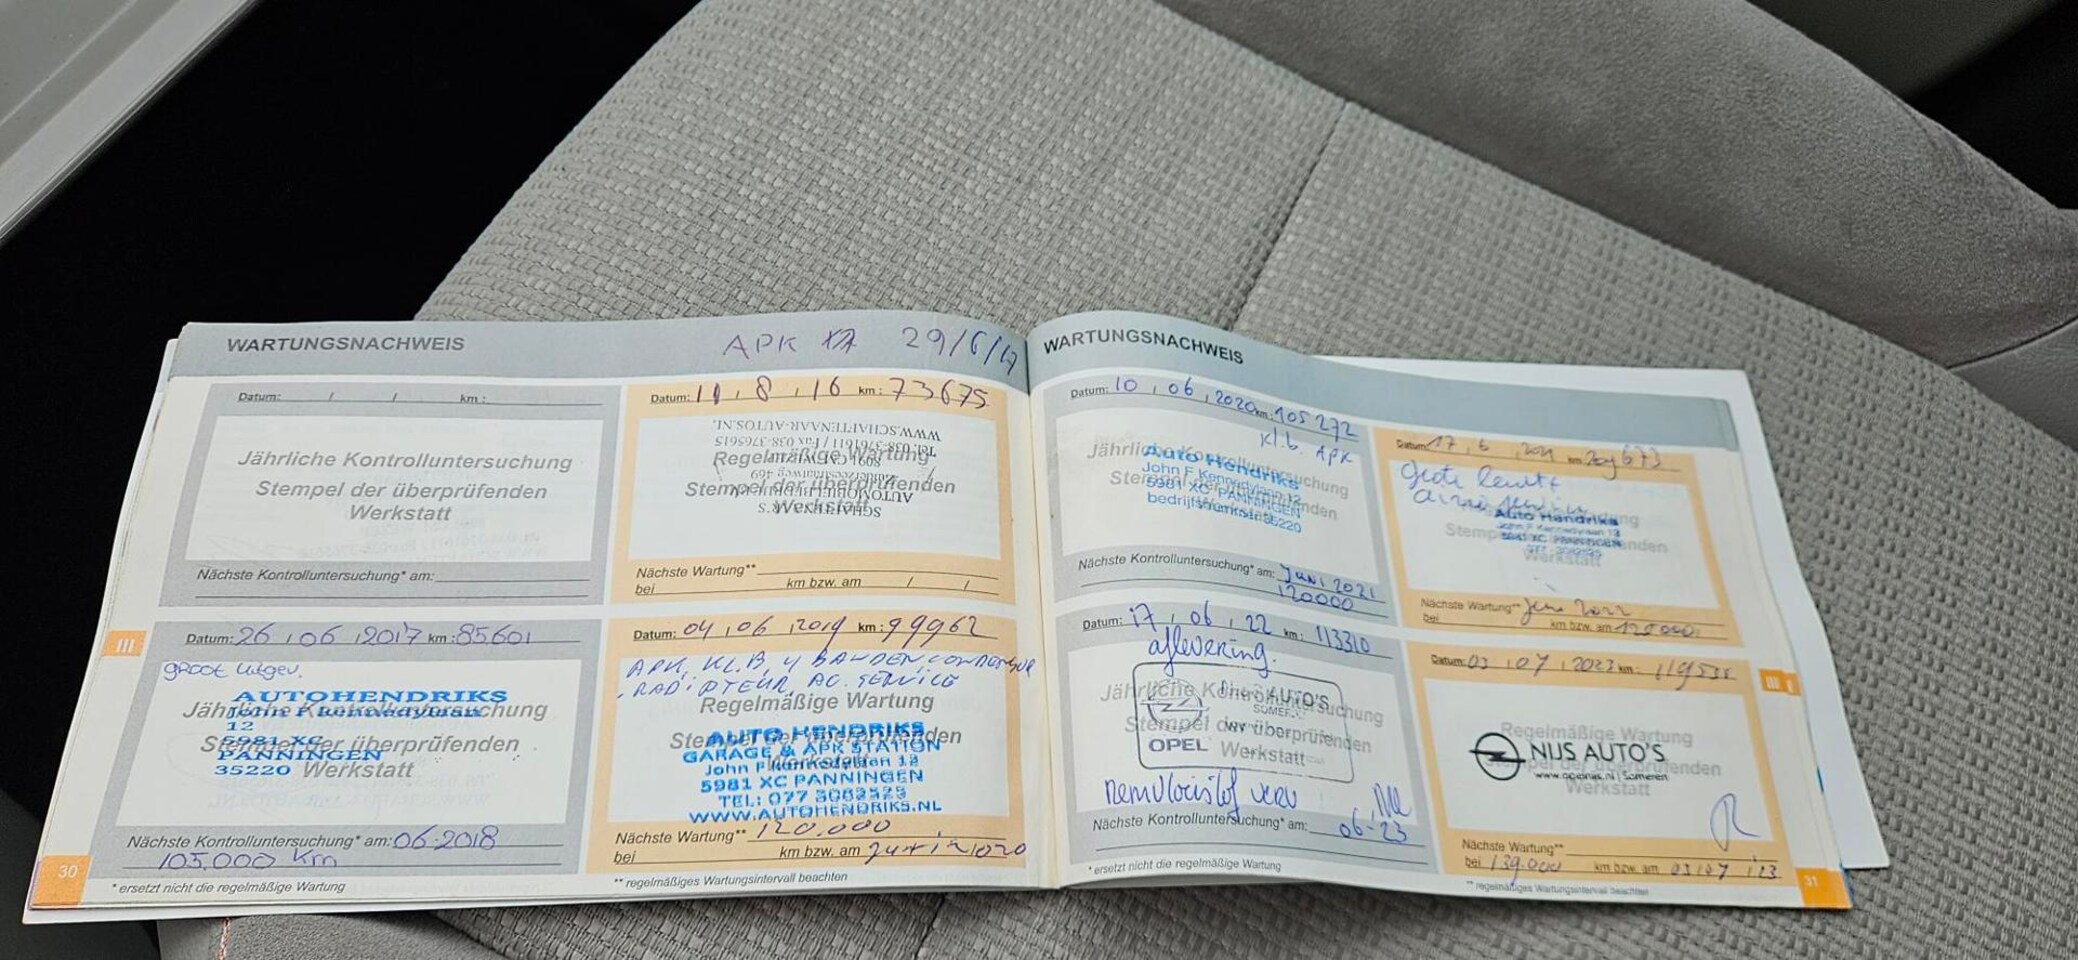 WARTUNGSNACHWEIS
APK 29/6/17
Datum: / / km:
Jährliche Kontrolluntersuchung
Stempel der überprüfenden
Werkstatt
Nächste Kontrolluntersuchung* am:
Datum: 11,8,16 km: 73675
SCHAFTENAAR'S
AUTOMOBIELBEDRIJF
8091
Tel. 038-3761611 / Fax 038-3765615
WWW.SCHAFTENAAR-AUTOS.NL
Regelmäßige Wartung
Stempel der überprüfenden
Werkstatt
Nächste Wartung**
bei km bzw. am / /
Datum: 26,06,2017 km: 85601
groot uitgev.
AUTOHENDRIKS
John F Kennedylaan
12
5981 XC
PANNINGEN
35220
Jährliche Kontrolluntersuchung
Stempel der überprüfenden
Werkstatt
Nächste Kontrolluntersuchung* am: 06-2018
105.000 Km
* ersetzt nicht die regelmäßige Wartung
30
III
Datum: 04,06,2019 km: 99962
APK, KL.B, 4 BANDEN
AC. SERVICE
Regelmäßige Wartung
Stempel der überprüfenden
Werkstatt
AUTO HENDRIKS
GARAGE & APK STATION
John F Kennedylaan 12
5981 XC PANNINGEN
TEL: 077 3082525
WWW.AUTOHENDRIKS.NL
Nächste Wartung** 120.000
bei km bzw. am 2020
** regelmäßiges Wartungsintervall beachten
WARTUNGSNACHWEIS
Datum: 10,06,2020 km: 105272
kl.b. APK
Jährliche Kontrolluntersuchung
Stempel der überprüfenden
Werkstatt
Auto Hendriks
John F Kennedylaan 12
5981 XC PANNINGEN
bedrijfsnummer 35220
Nächste Kontrolluntersuchung* am: Juni 2021
120000
Datum: 17,6,2021 km 109673
Grote beurt
Auto Hendriks
John F Kennedylaan 12
5981 XC PANNINGEN
Stempel der überprüfenden
Werkstatt
Nächste Wartung** Juni 2022
bei km bzw. am 125000
Datum: 17,06,22 km: 113310
aflevering.
Jährliche Kontrolluntersuchung
Stempel der überprüfenden
Werkstatt
NIJS AUTO'S
SOMEREN
OPEL
Remvloeistof verv
Nächste Kontrolluntersuchung* am: 06-23
* ersetzt nicht die regelmäßige Wartung
Datum: 03,07,2023 km: 119535
Regelmäßige Wartung
Stempel der überprüfenden
Werkstatt
NIJS AUTO'S
www.opelnijs.nl | Someren
Nächste Wartung**
bei 139.000 km bzw. am 03,07,23
** regelmäßiges Wartungsintervall beachten
31
III